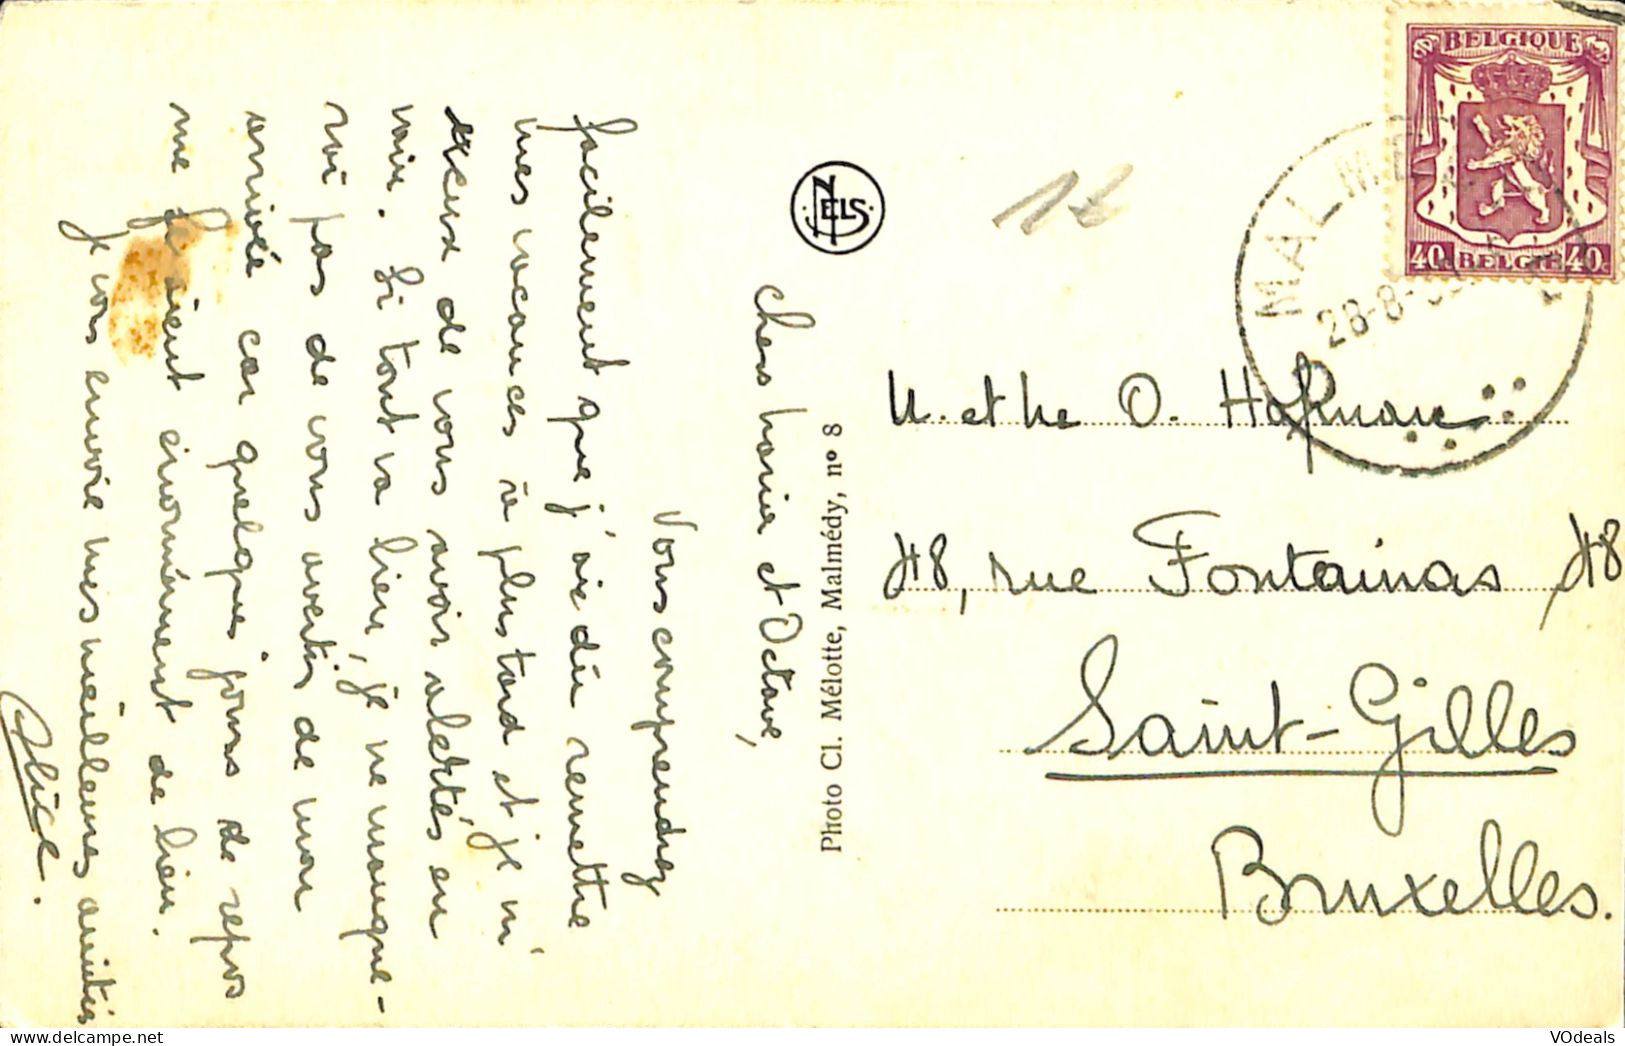 Chers Maria et Octave,
Vous comprendrez
facilement que j'ai dû remettre
mes vacances à plus tard et je m'
de vous avoir alertés en
vain. Si tout va bien, je ne manque-
rai pas de vous avertir de mon
arrivée car quelques jours de repos
me feraient énormément de bien.
Je vous envoie mes meilleures amitiés
Alice.
Photo Cl. Mélotte, Malmédy, nº 8
NELS
18
BELGIQUE
40 BELGIE 40
MALMEDY
28-8-
M. et Me O. Hofman
48, rue Fontainas, 48
Saint-Gilles
Bruxelles.
VOdeals